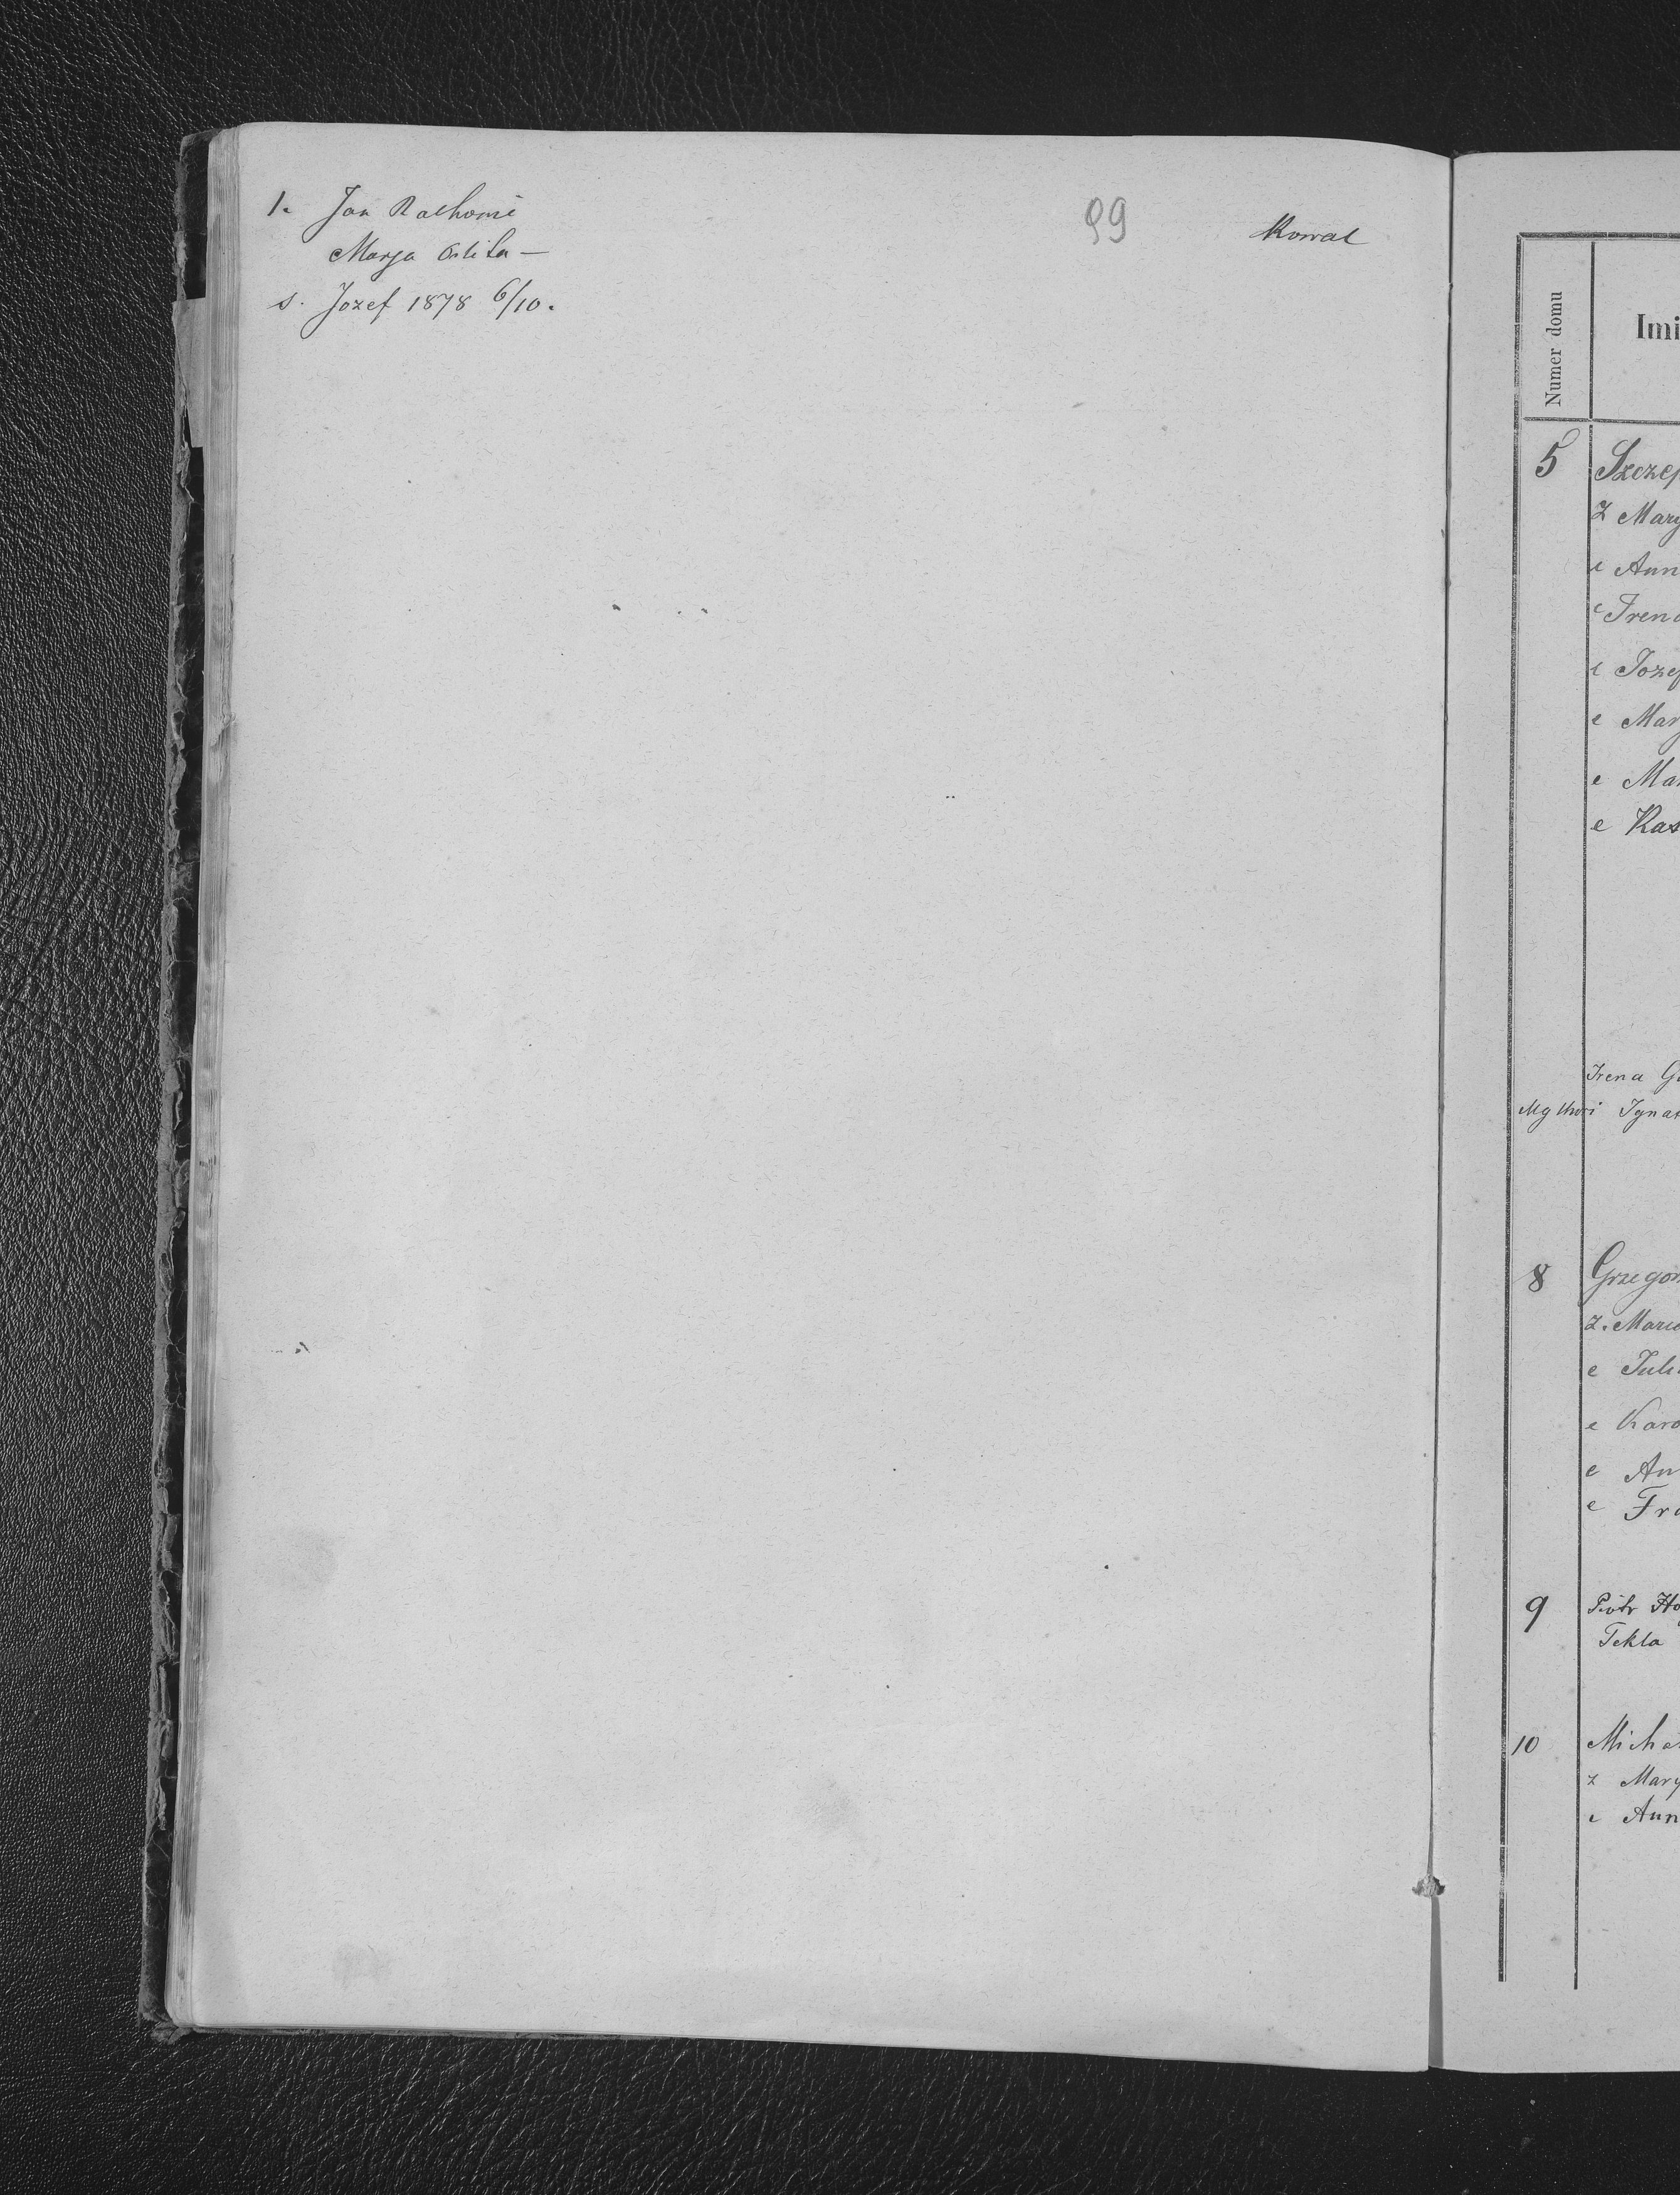 1. Jan
Marja
s. Jozef 1878 6/10.
99
Kowal
Numer domu
Imi
5 Szczep
Z Mary
c Ann
c Irena
c Jozef
c Mary
c Mar
c Kas
Irena G
Ignat
8 Grzegor
z. Mar
c Juli
c Karo
c An
c Fra
9 Piotr Ho
Tekla
10 Micha
z Mary
c Ann